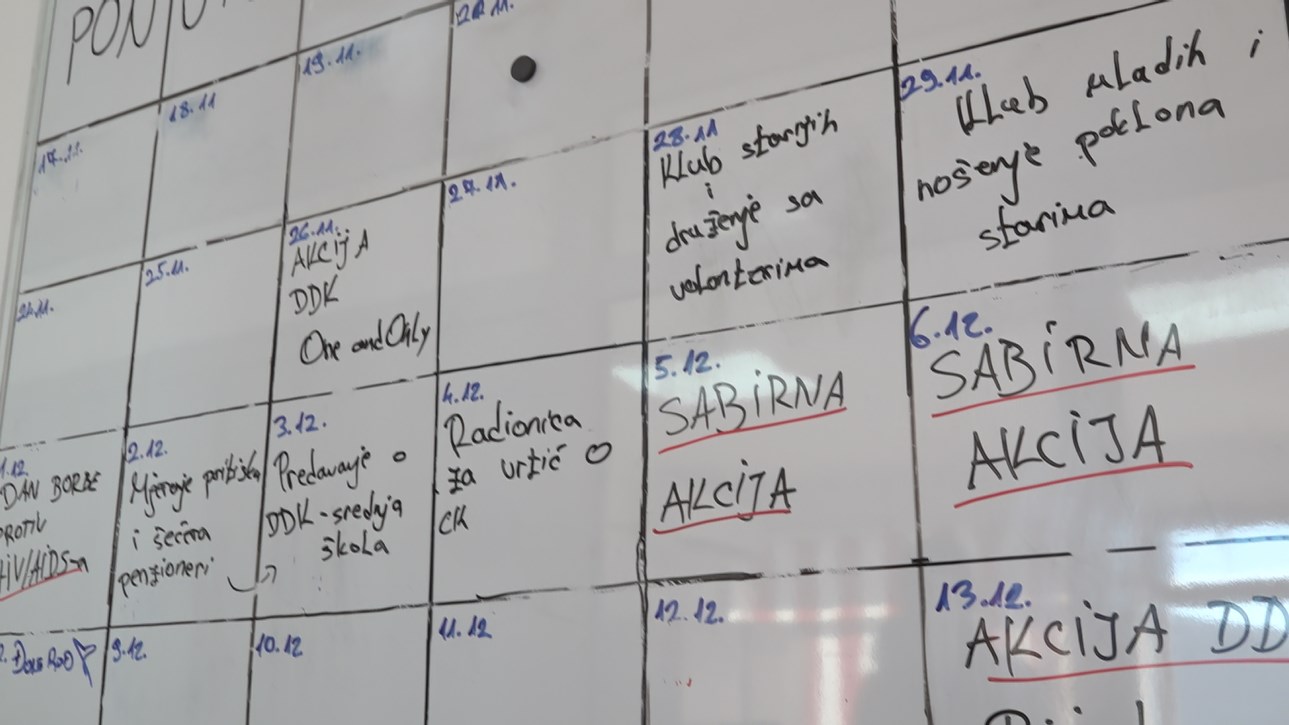 19.11.
18.11
17.11.
29.11.
Klub mladih i
nošenje poklona
starima
28.11
Klub starijih
i
druženje sa
volonterima
27.11.
26.11.
AKCIJA
DDK
One and Only
25.11.
24.11.
6.12.
SABIRNA
AKCIJA
5.12.
SABIRNA
AKCIJA
4.12.
Radionica
za vrtić O
CK
3.12.
Predavanje o
DDK - srednja
škola
2.12.
Mjerenje pritiska
i šećera
penzioneri
1.12.
DAN BORBE
PROTIV
HIV/AIDS-a
13.12.
AKCIJA DD
12.12.
11.12
10.12
9.12.